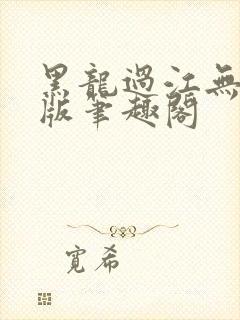 黑龍過江無
版筆趣閣
寬希